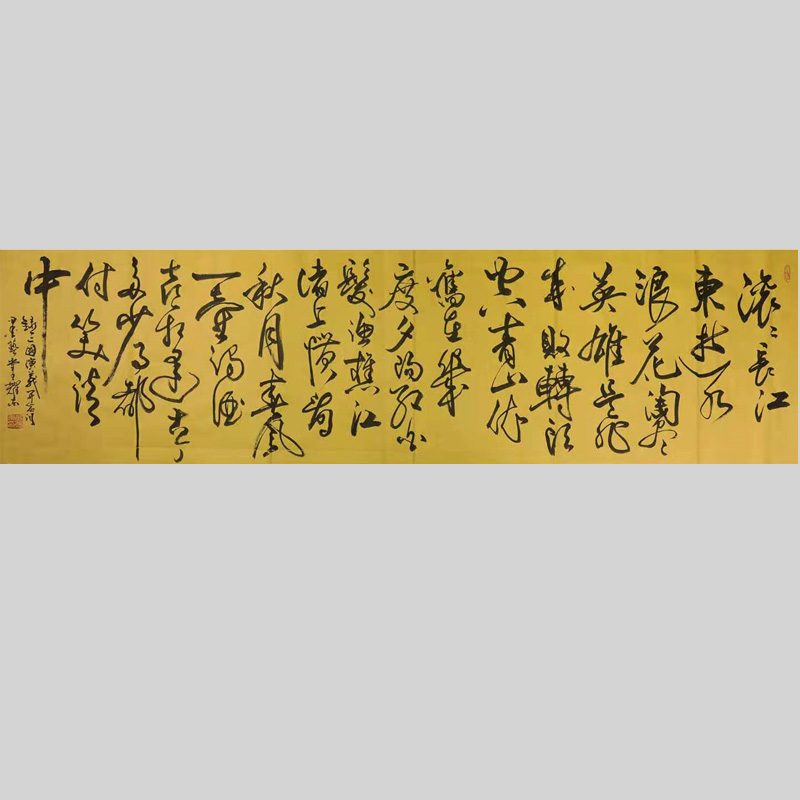 滚〻長江
東逝水
浪花淘盡
英雄是非
成敗轉頭
空青山依
舊在幾
度夕陽紅白
髮漁樵江
渚上慣看
秋月春風
一壺濁酒
喜相逢古今
多少事都
付笑談
中
錄三國演義開篇詞